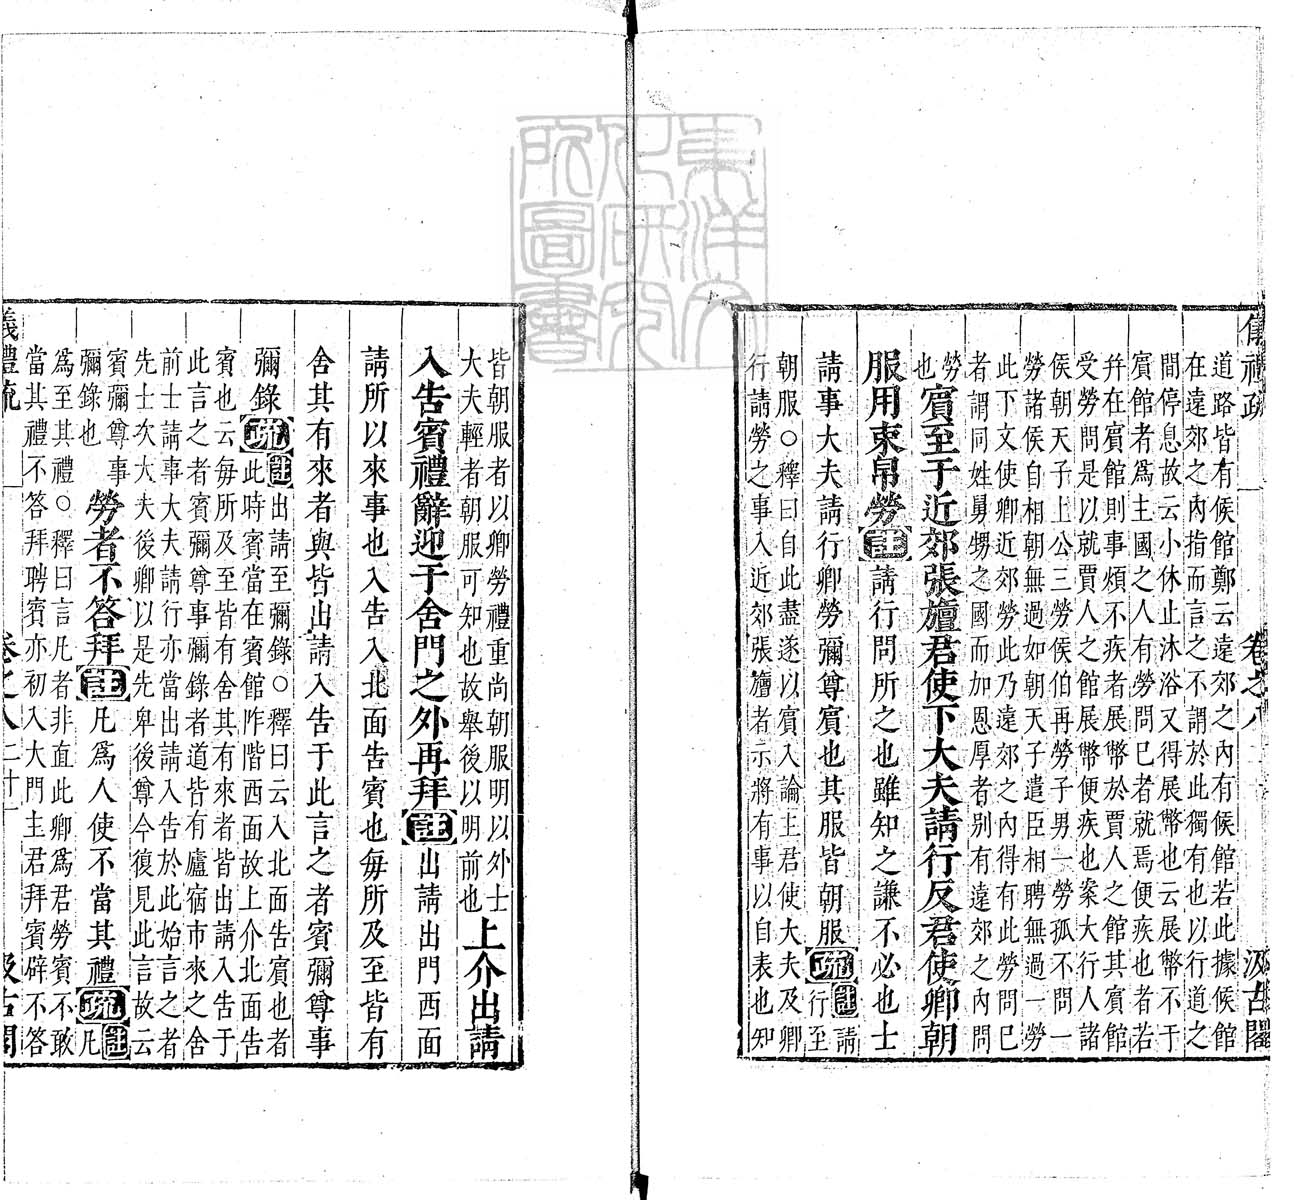 儀禮疏 卷之八 汲古閣
道路皆有候館鄭云遠郊之內有候館若此據候館
在遠郊之內指而言之不謂於此獨有也以行道之
間停息故云小休止沐浴又得展幣也云展幣不于
賓館者爲主國之人有勞問已者就焉便疾也者若
幷在賓館則事煩不疾者展幣於賈人之館其賓館
受勞問是以就賈人之館展幣便疾也案大行人諸
侯朝天子上公三勞侯伯再勞子男一勞孤不問一
勞諸侯自相朝無過如朝天子遣臣相聘無過一勞
此下文使卿近郊勞此乃遠郊之內得有此勞問已
者謂同姓舅甥之國而加恩厚者別有遠郊之內問
勞
也
賓至于近郊張旜君使下大夫請行反君使卿朝
服用束帛勞註請行問所之也雖知之謙不必也士
請事大夫請行卿勞彌尊賓也其服皆朝服疏註請
行至
朝服○釋曰自此盡遂以賓入論主君使大夫及卿
行請勞之事入近郊張旜者示將有事以自表也知
皆朝服者以卿勞禮重尚朝服明以外士
大夫輕者朝服可知也故舉後以明前也
上介出請
入告賓禮辭迎于舍門之外再拜註出請出門西面
請所以來事也入告入北面告賓也每所及至皆有
舍其有來者與皆出請入告于此言之者賓彌尊事
彌錄疏註出請至彌錄○釋曰云入北面告賓也者
此時賓當在賓館阼階西面故上介北面告
賓也云每所及至皆有舍其有來者皆出請入告于
此言之者賓彌尊事彌錄者道皆有廬宿市來之舍
前士請事大夫請行亦當出請入告於此始言之者
先士次大夫後卿以是先卑後尊今復見此言故云
賓彌尊事
彌錄也
勞者不答拜註凡爲人使不當其禮疏註凡
爲至其禮○釋曰言凡者非直此卿爲君勞賓不敢
當其禮不答拜聘賓亦初入大門主君拜賓辟不答
儀禮疏 卷之八 二十一 汲古閣